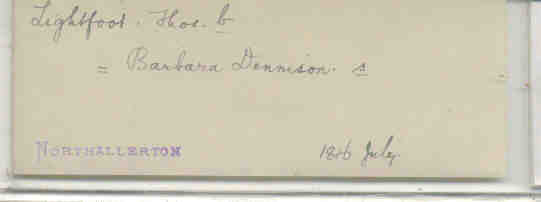 Lightfoot. Thos. b
= Barbara Dennison. s
NORTHALLERTON 1816 July.